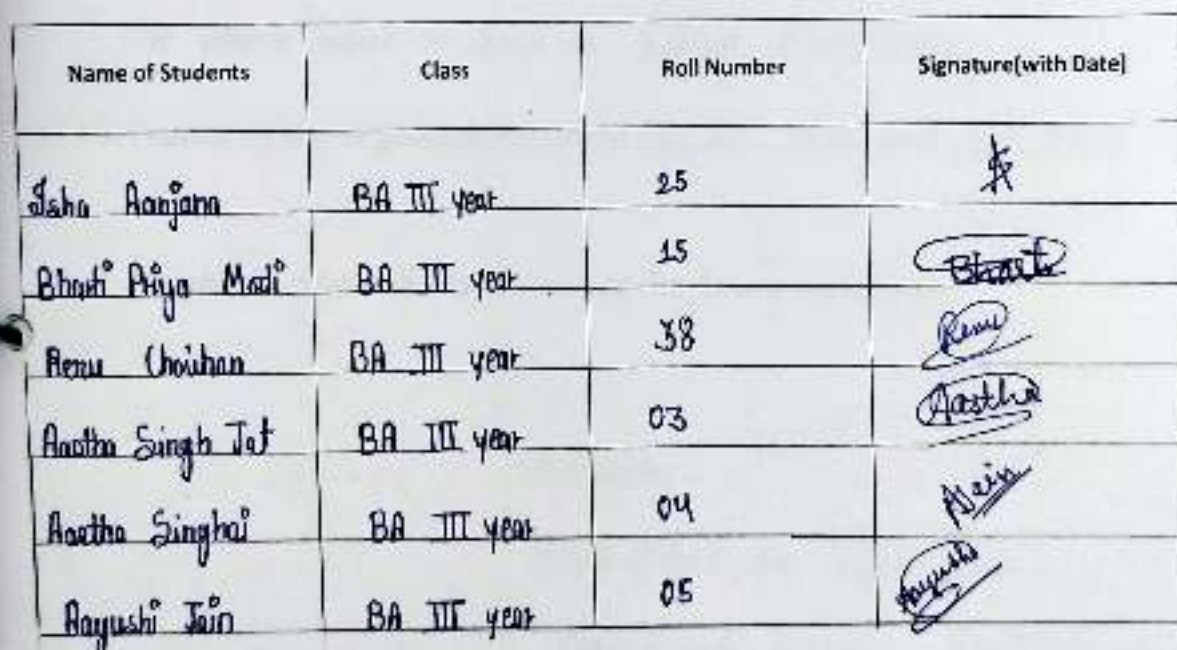 Name of Students Class Roll Number Signature(with Date)
Isha Aanjana BA III year 25
Bharti Priya Modi BA III year 15 Bharti
Renu Chouhan BA III year 38 Renu
Aastha Singh Jat BA III year 03 Aastha
Aastha Singhai BA III year 04
Aayushi Jain BA III year 05 Aayushi